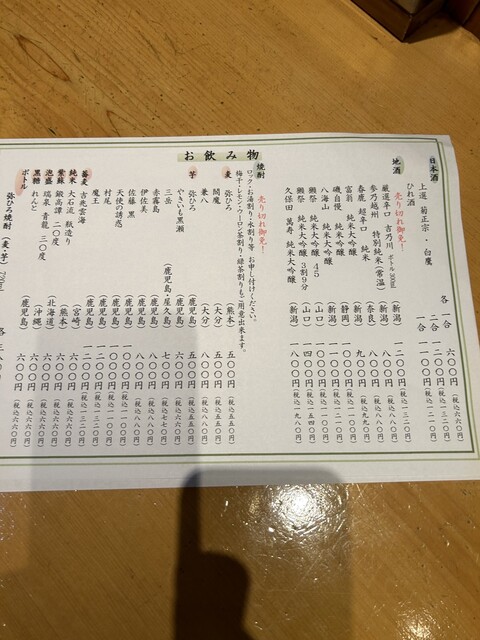 お飲み物
日本酒
上選 菊正宗 ・ 白鷹 各一合 六〇〇円（税込六六〇円）
ひれ酒 一合 一二〇〇円（税込一三二〇円）
一合 一一〇〇円（税込一二一〇円）
地酒 売り切れ御免！
厳選辛口 吉乃川 ボトル300ml （新潟） 一二〇〇円（税込一三二〇円）
参乃越州 特別純米（常温） （新潟） 八〇〇円（税込八八〇円）
春鹿 超辛口 純米 （奈良） 八〇〇円（税込八八〇円）
富翁 純米大吟醸 （新潟） 九〇〇円（税込九九〇円）
磯自慢 純米吟醸 （静岡） 一〇〇〇円（税込一一〇〇円）
八海山 純米大吟醸 （新潟） 一〇〇〇円（税込一一〇〇円）
獺祭 純米大吟醸 45 （山口） 一〇〇〇円（税込一一〇〇円）
獺祭 純米大吟醸 3割9分 （山口） 一四〇〇円（税込一五四〇円）
久保田 萬寿 純米大吟醸 （新潟） 一八〇〇円（税込一九八〇円）
焼酎 売り切れ御免！
ロック・お湯割り・水割り等 お申し付けください。
梅干・レモン・ウーロン茶割り・緑茶割りもご用意出来ます。
麦 弥ひろ （熊本） 五〇〇円（税込五五〇円）
閻魔 （大分） 五〇〇円（税込五五〇円）
兼八 （大分） 八〇〇円（税込八八〇円）
芋 弥ひろ （鹿児島） 五〇〇円（税込五五〇円）
やきいも黒瀬 （鹿児島） 六〇〇円（税込六六〇円）
三岳 （鹿児島・屋久島） 七〇〇円（税込七七〇円）
赤霧島
伊佐美 （鹿児島） 八〇〇円（税込八八〇円）
佐藤 黒 （鹿児島）
天使の誘惑 （鹿児島）
村尾 （鹿児島）
魔王 （鹿児島）
蕎麦 吉兆雲海 （宮崎） 六〇〇円（税込六六〇円）
純米 大石流 瓶造り （熊本） 六〇〇円（税込六六〇円）
紫蘇 鍛高譚 二〇度 （北海道） 六〇〇円（税込六六〇円）
泡盛 瑞泉 青龍 三〇度 （沖縄） 六〇〇円（税込六六〇円）
黒糖 れんと （鹿児島） 六〇〇円（税込六六〇円）
ボトル
弥ひろ焼酎 （麦・芋） 720ml 各